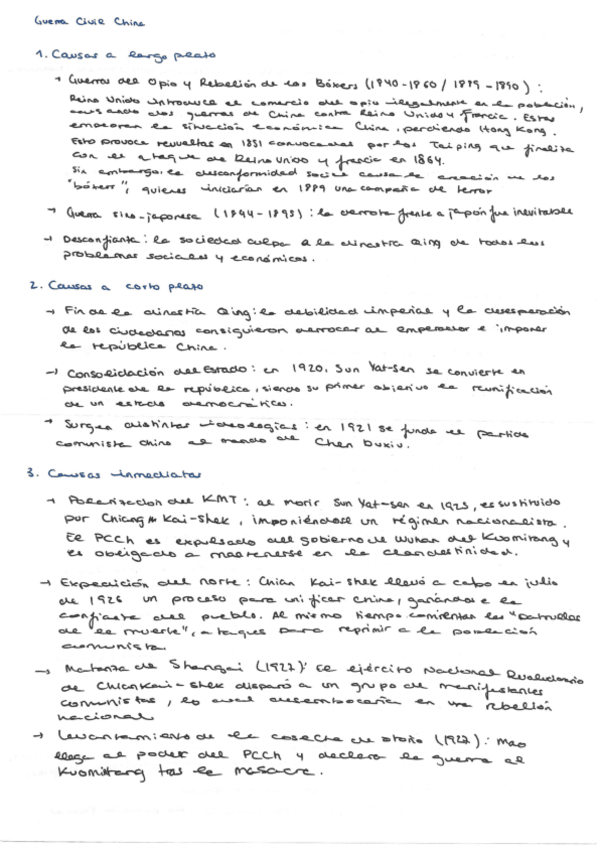 Guerra Civil China
1. Causas a largo plazo
→ Guerras del Opio y Rebelión de los Bóxers (1840-1860 / 1899-1890) :
Reino Unido introduce el comercio del opio ilegalmente en la población,
causando dos guerras de China contra Reino Unido y Francia. Estas
empeoran la situación económica China, perdiendo Hong Kong.
Esto provoca revueltas en 1851 convocadas por los Taiping que finaliza
con el ataque de Reino Unido y francia en 1864.
Sin embargo, la desconformidad social causa la creación de los
"bóxers", quienes iniciarían en 1899 una campaña de terror
→ Guerra sino-japonesa (1894-1895) : la derrota frente a japón fue inevitable
→ Desconfianza : la sociedad culpa a la dinastía Qing de todos los
problemas sociales y económicos.
2. Causas a corto plazo
→ Fin de la dinastía Qing: la debilidad imperial y la desesperación
de los ciudadanos consiguieron derrocar al emperador e imponer
la república China.
→ Consolidación del Estado : en 1920, Sun Yat-sen se convierte en
presidente de la república, siendo su primer objetivo la reunificación
de un estado democrático.
→ Surgen distintas ideologías : en 1921 se funda el partido
comunista chino al mando de Chen Duxiu.
3. Causas inmediatas
→ Polarización del KMT : al morir Sun Yat-sen en 1925, es sustituido
por Chiang Kai-Shek, imponiéndose un régimen nacionalista.
El PCCh es expulsado del gobierno de Wuhan del Kuomitang y
es obligado a mantenerse en la clandestinidad.
→ Expedición del norte : Chian Kai-shek llevó a cabo en julio
de 1926 un proceso para unificar China, ganándose la
confianza del pueblo. Al mismo tiempo comienzan las "patrullas
de la muerte", ataques para reprimir a la población
comunista.
→ Matanza de Shangai (1927): el ejército Nacional Revolucionario
de Chian Kai-shek disparó a un grupo de manifestantes
comunistas, lo cual desembocaría en una rebelión
nacional
→ Levantamiento de la cosecha de otoño (1927) : Mao
llega al poder del PCCh y declara la guerra al
Kuomitang tras la masacre.